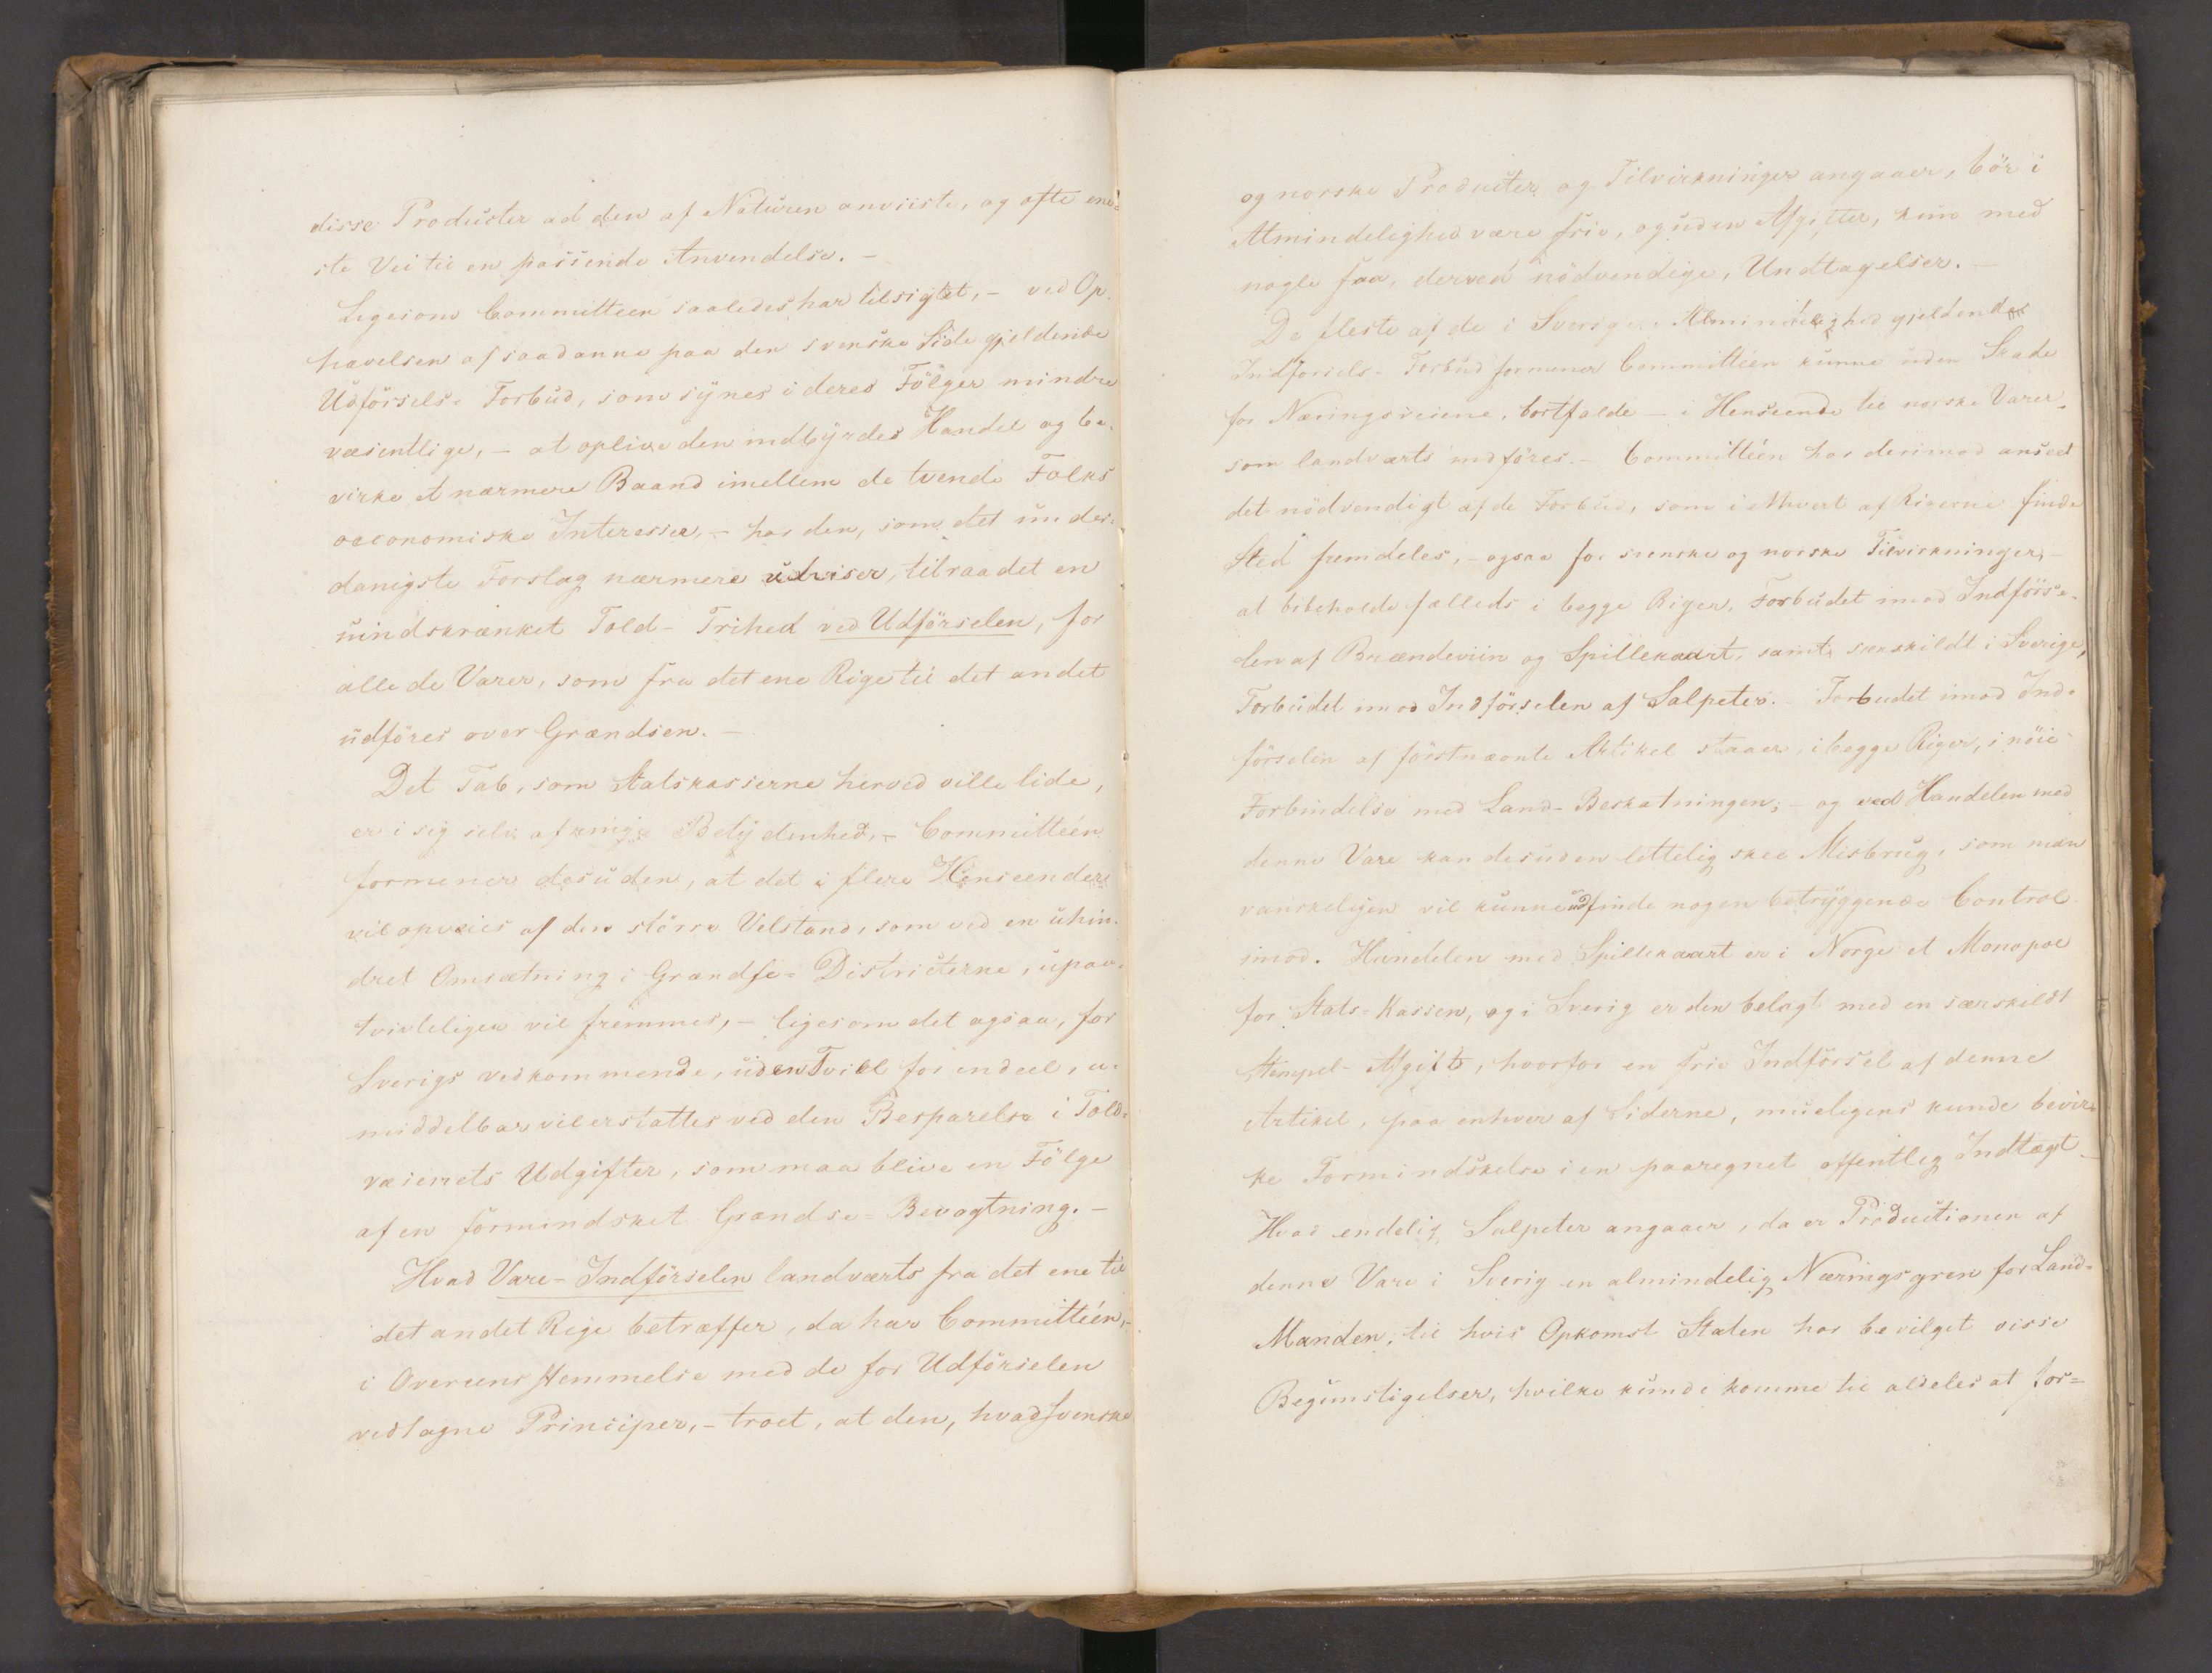 disse Producter ad den af Naturen anviiste, og ofte ene-
ste Vei til en passende Anvendelse. –
Ligesom Committeen saaledes har tilsigtet, – ved Op-
hævelsen af saadanne paa den svenske Side gjeldende
Udförsels- Forbud, som synes i deres Fölger mindre
væsentlige, – at oplive den indbyrdes Handel og be-
virke et nærmere Baand imellem de tvende Folks
oeconomiske Interesser, – har den, som det under-
danigste Forslag nærmere udviser, tilraadet en
uindskrænket Told- Frihed ved Udförselen, for
alle de Varer, som fra det ene Rige til det andet
udföres over Grændsen. –
Det Tab, som Statskasserne herved ville lide,
er i sig selv af ringe Betydenhed, – Committeén
formener desuden, at det i flere Henseender
vil opveies af den större Velstand, som ved en uhin-
dret Omsætning i Grændse- Districterne, upaa-
tvivleligen vil fremmes, – ligesom det ogsaa, for
Sverigs vedkommende, uden Tvivl for endeel, u-
middelbar vil erstattes ved den Besparelse i Told-
væsenets Udgifter, som maa blive en Fölge
af en formindsket Grændse- Bevogtning. –
Hvad Vare- Indförselen landværts fra det ene til
det andet Rige betræffer, da har Committéen, –
i Overeensstemmelse med de for Udförselen
vedtagne Principer, – troet, at den, hvad svenske
og norske Producter og Tilvirkninger angaaer, bör i
Almindelighed være frie, og uden Afgifter, kun med
nogle faa, derved nödvendige, Undtagelser. –
De fleste af de i Sverige i Almindelighed gjeldende
Indförsels- Forbud formener Committéen kunne uden Skade
for Næringsveiene, bortfalde – i Henseende til norske Varer,
som landværts indföres. – Committéen har derimod anseet
det nödvendigt af de Forbud, som i ethvert af Rigerne finde
Sted fremdeles, – ogsaa for svenske og norske Tilvirkninger, –
at bibeholde fælleds i begge Riger, Forbudet imod Indförse-
len af Brændeviin og Spillekaart, samt, særskildt i Sverige,
Forbudet imod Indförselen af Salpeter. – Forbudet imod Ind-
förselen af förstnævnte Artikel staaer, i begge Riger, i nöie
Forbindelse med Land- Beskatningen; – og ved Handelen med
denne Vare kan desuden lettelig skee Misbrug, som man
vanskeligen vil kunne udfinde nogen betryggende Control
imod. Handelen med Spillekaart er i Norge et Monopol
for Stats- Kassen, og i Sverig er den belagt med en særskildt
Stempel- Afgift, hvorfor en frie Indförsel af denne
Artikel, paa enhver af Siderne, mueligens kunde bevir-
ke Formindskelse i en paaregnet offentlig Indtægt. –
Hvad endelig Salpeter angaaer, da er Productionen af
denne Vare i Sverig en almindelig Næringsgren for Land-
Manden, til hvis Opkomst Staten har bevilget visse
Begunstigelser, hvilke kunde komme til aldeles at for-